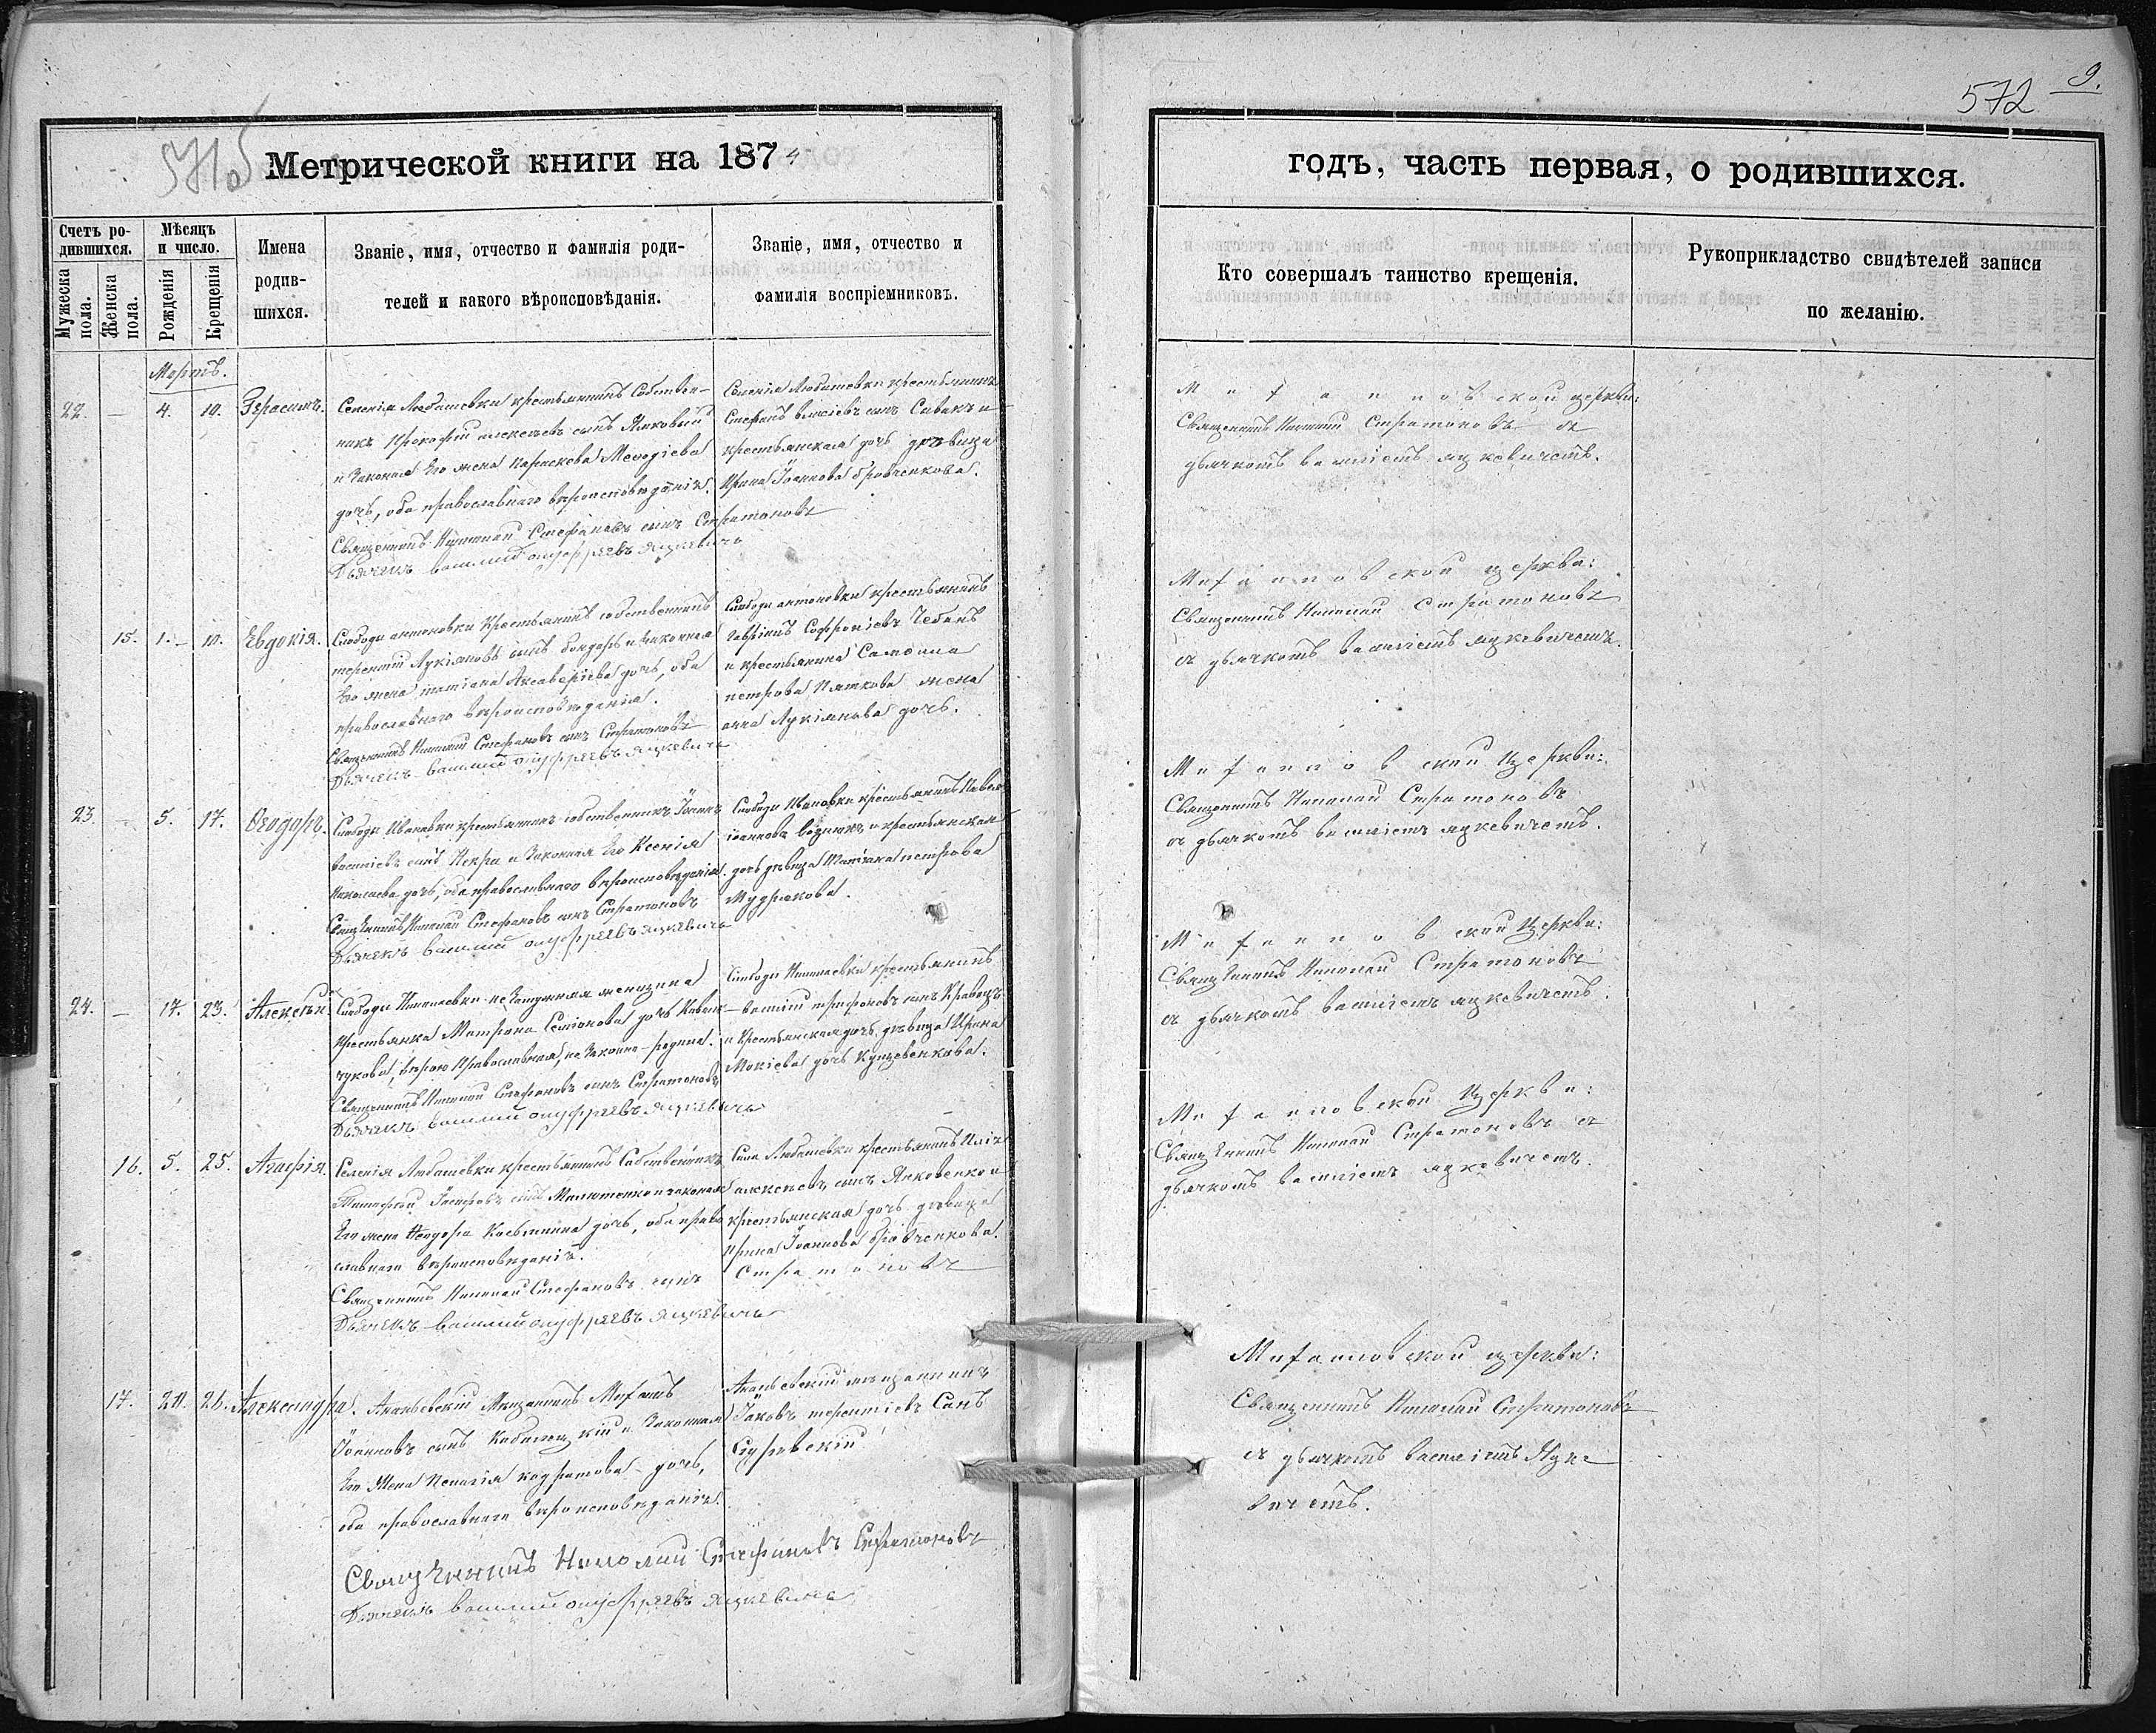 571об
Метрической книги на 1874
Счетъ ро-
дившихся.
Мужеска
пола.
Женска
пола.
Мѣсяцъ
и число.
Рожденія
Крещенія
Имена
родив-
шихся.
Званіе, имя, отчество и фамилія роди-
телей и какого вѣроисповѣданія.
Званіе, имя, отчество и
фамилія воспріемниковъ.
Мартъ.
22. — 4. 10. Герасимъ.
Селенія Любашевки крестьянинъ Собствен-
никъ Прокофій Алексѣевъ сынъ
и Законная Его жена Параскева Меѳодіева
дочь, оба православнаго вѣроисповѣданія.
Священникъ Николай Стефановъ сынъ Стратоновъ
Дьячекъ Василий Онуфріевъ Яцкевичъ
Селенія Любашевки крестьянинъ
Стефанъ сынъ Савакъ и
крестьянская дочь дѣвица
Ирина Іоаннова Бровченкова.
15. 1. 10. Евдокія.
Слободы Антоновки Крестьянинъ собственникъ
Терентій Лукіяновъ сынъ Бондарь и Законная
Его жена Татіана дочь, оба
православнаго вѣроисповѣданія.
Священникъ Николай Стефановъ сынъ Стратоновъ
Дьячекъ Василий Онуфріевъ Яцкевичъ
Слободы Антоновки крестьянинъ
Гавріилъ Софроніевъ Чебанъ
и крестьянина
Петрова жена
Анна Лукіянова дочь.
23. — 5. 17. Ѳеодоръ.
Слободы Ивановки крестьянинъ собственникъ Іоаннъ
Василіевъ сынъ Некра и Законная Его Ксенія
Николаева дочь, оба православнаго вѣроисповѣданія.
Священникъ Николай Стефановъ сынъ Стратоновъ
Дьячекъ Василий Онуфріевъ Яцкевичъ
Слободы Ивановки крестьянинъ Павелъ
Іоанновъ и крестьянская
дочь дѣвица Татіана Петрова
Мудракова.
24. — 17. 23. Алексѣй
Слободы Николаевки незамужняя женщина
крестьянка Матрона Семіонова дочь
вѣрою Православная, не Законно-родила.
Священникъ Николай Стефановъ сынъ Стратоновъ
Дьячекъ Василий Онуфріевъ Яцкевичъ
Слободы Николаевки крестьянинъ
Василій Трифоновъ сынъ Кравецъ
и Крестьянская дочь дѣвица Ирина
Мокіева дочь
16. 5. 25. Агафія.
Селенія Любашевки крестьянинъ Собственникъ
Тимофей сынъ и законная
Его жена Ѳеодора Косьмина дочь, оба право
славнаго вѣроисповѣданія.
Священникъ Николай Стефановъ сынъ Стратоновъ
Дьячекъ Василий Онуфріевъ Яцкевичъ
Села Любашевки крестьянинъ Илія
Алексѣевъ сынъ Яковенко и
крестьянская дочь дѣвица
Ирина Іоаннова Бровченкова.
17. 26. Александра.
Ананьевскій Мѣщанинъ
Іоанновъ сынъ и Законная
Его Жена Пелагія Кодратова дочь,
оба православнаго вѣроисповѣданія.
Священникъ Николай Стефановъ Стратоновъ
Дьячекъ Василий Онуфріевъ Яцкевичъ
Ананьевскій мѣщанинъ
Іаковъ Терентіевъ Сынъ
572 9.
годъ, часть первая, о родившихся.
Кто совершалъ таинство крещенія.
Рукоприкладство свидѣтелей записи
по желанію.
церкви:
Священникъ Николай Стратоновъ съ
дьячкомъ Василіемъ Яцкевичемъ.
церкви:
Священникъ Николай Стратоновъ
съ дьячкомъ Василіемъ Яцкевичемъ.
церкви:
Священникъ Николай Стратоновъ
съ дьячкомъ Василіемъ Яцкевичемъ.
Церкви:
Священникъ Николай Стратоновъ
съ дьячкомъ Василіемъ Яцкевичемъ.
Церкви:
Священникъ Николай Стратоновъ съ
дьячкомъ Василіемъ Яцкевичемъ.
церкви:
Священникъ Николай Стратоновъ
съ дьячкомъ Василіемъ Яцке-
вичемъ.